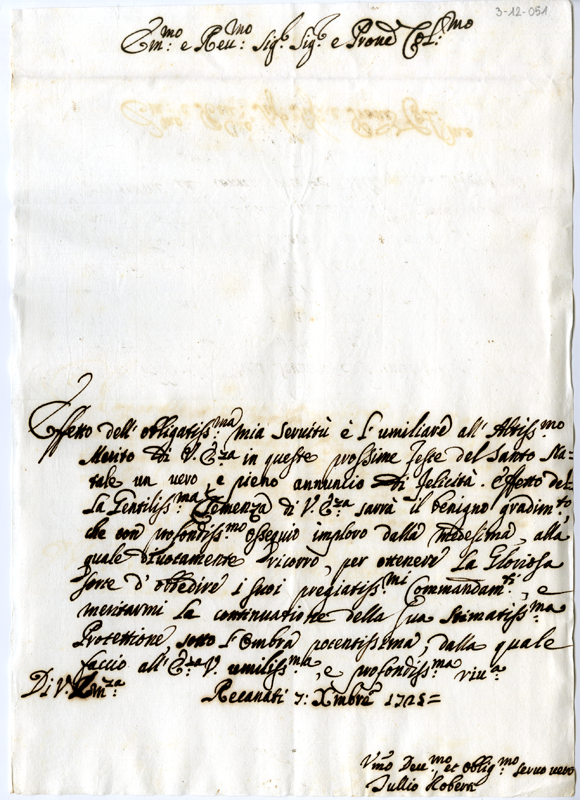 3-12-051
Em.mo e Reu.mo Sig.r Sig.r e Prone Col.mo
Effetto dell' obligatiss.ma mia seruitù è l' umiliare all' Altiss.mo
Merito di V. E.za in queste prossime feste del Santo Na-
tale un uero, e pieno annuncio di felicità. Effetto del-
la Gentiliss.ma Clemenza di V. E.za sarrà il benigno gradim.to,
che con profondiss.mo ossequio imploro dalla medesima, alla
quale diuotamente ricorro, per ottenere la Gloriosa
sorte d' obbedire i suoi pregiatiss.mi Commandam.ti, e
meritarmi la continuatione della sua stimatiss.ma
Protettione sotto l' Ombra potentissima, dalla quale
faccio all' E.za V. umiliss.ma, e profondiss.ma riu.a
Di V. Em.za Recanati 7: Xmbre 1725=
Vmo Deu.mo, et oblig.mo seruo uero
Tullio Roberti